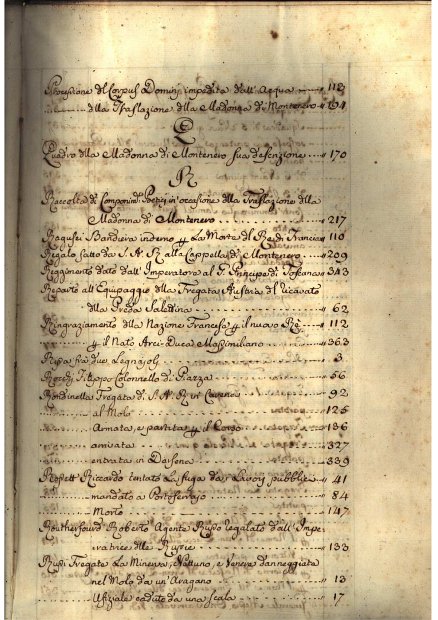 Processione del Corpus Domini impedita dall' Acqua ........ " 112
........ della Traslazione della Madonna di Montenero " 194
Q
Quadro della Madonna di Montenero sua descrizione ...... " 170
R
Raccolta di Componim. Poetici in occasione della Traslazione della
Madonna di Montenero ........ " 217
Ragusei Bandiera in torno p. La Morte del Re di Francia " 110
Regalo fatto da S. A. R. alla Cappella di Montenero ...... " 209
Reggimento dato dall' Imperatore al S. Principe di Toscana " 343
Reparto all' Equipaggio della Fregata Austria del Ricavato
della Preda Saletina ........ " 62
Ringraziamento della Nazione Francese p. il nuovo Rè ........ " 112
........ p. il Nato Arci-Duca Massimiliano ........ " 363
Rissa fra due Legnajoli ........ " 3
Filippo Colonnello di Piazza ........ " 56
Rondinella Fregata di S. A. R. in Carena ........ " 92
........ al Molo ........ " 125
........ Armata, e partita p. il Corso ........ " 136
........ arrivata ........ " 327
........ entrata in Darsena ........ " 339
Riccardo tentata La fuga da Lavori pubblici " 41
........ mandato a Portoferrajo ........ " 84
........ Morto ........ " 147
Roberto Agente Russo regalato dall' Impe
ratrice delle Russie ........ " 133
Russi Fregate La Minerva, Nettuno, e Venere danneggiate
nel Molo da un' Uragano ........ " 13
........ Ufiziale caduto da una scala ........ " 17